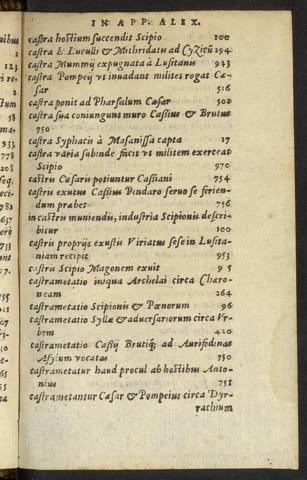 IN APP. ALEX.
castra hostium succendit Scipio 100
castra E. Luculli & Mithridatis ad Cyzicũ 294
castra Mummij expugnata à Lusitanis 943
castra Pompeij vt inuadant milites rogat Cæ-
sar 516
castra ponit ad Pharsalum Cæsar 502
castra sua coniungunt muro Cassius & Brutus
750
castra Syphacis à Masanissa capta 17
castra varia subinde facit vt militem exerceat
Scipio 970
castris Cæsaris potiuntur Cassiani 754
castris exutus Cassius Pindaro seruo se ferien-
dum præbet 756
in castris muniendis, industria Scipionis descri-
bitur 100
castris proprijs exustis Viriatus sese in Lusita-
niam recipit 953
castris Scipio Magonem exuit 95
castrametatio iniqua Archelai circa Charo-
neam 264
castrametatio Scipionis & Pœnorum 96
castrametatio Syllæ & aduersariorum circa Vr-
bem 420
castrametatio Cassij Brutiq; ad Aurifodinas
Asylum vocatas 750
castrametatur haud procul ab hostibus Anto-
nius 751
castrametantur Cæsar & Pompeius circa Dyr-
rachium